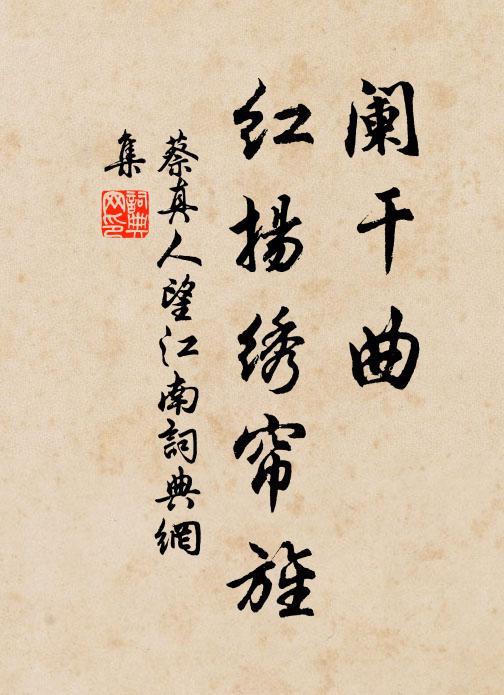 阑干曲
红揚绣帘旌
蔡真人望江南詞典網
集
詞典网印